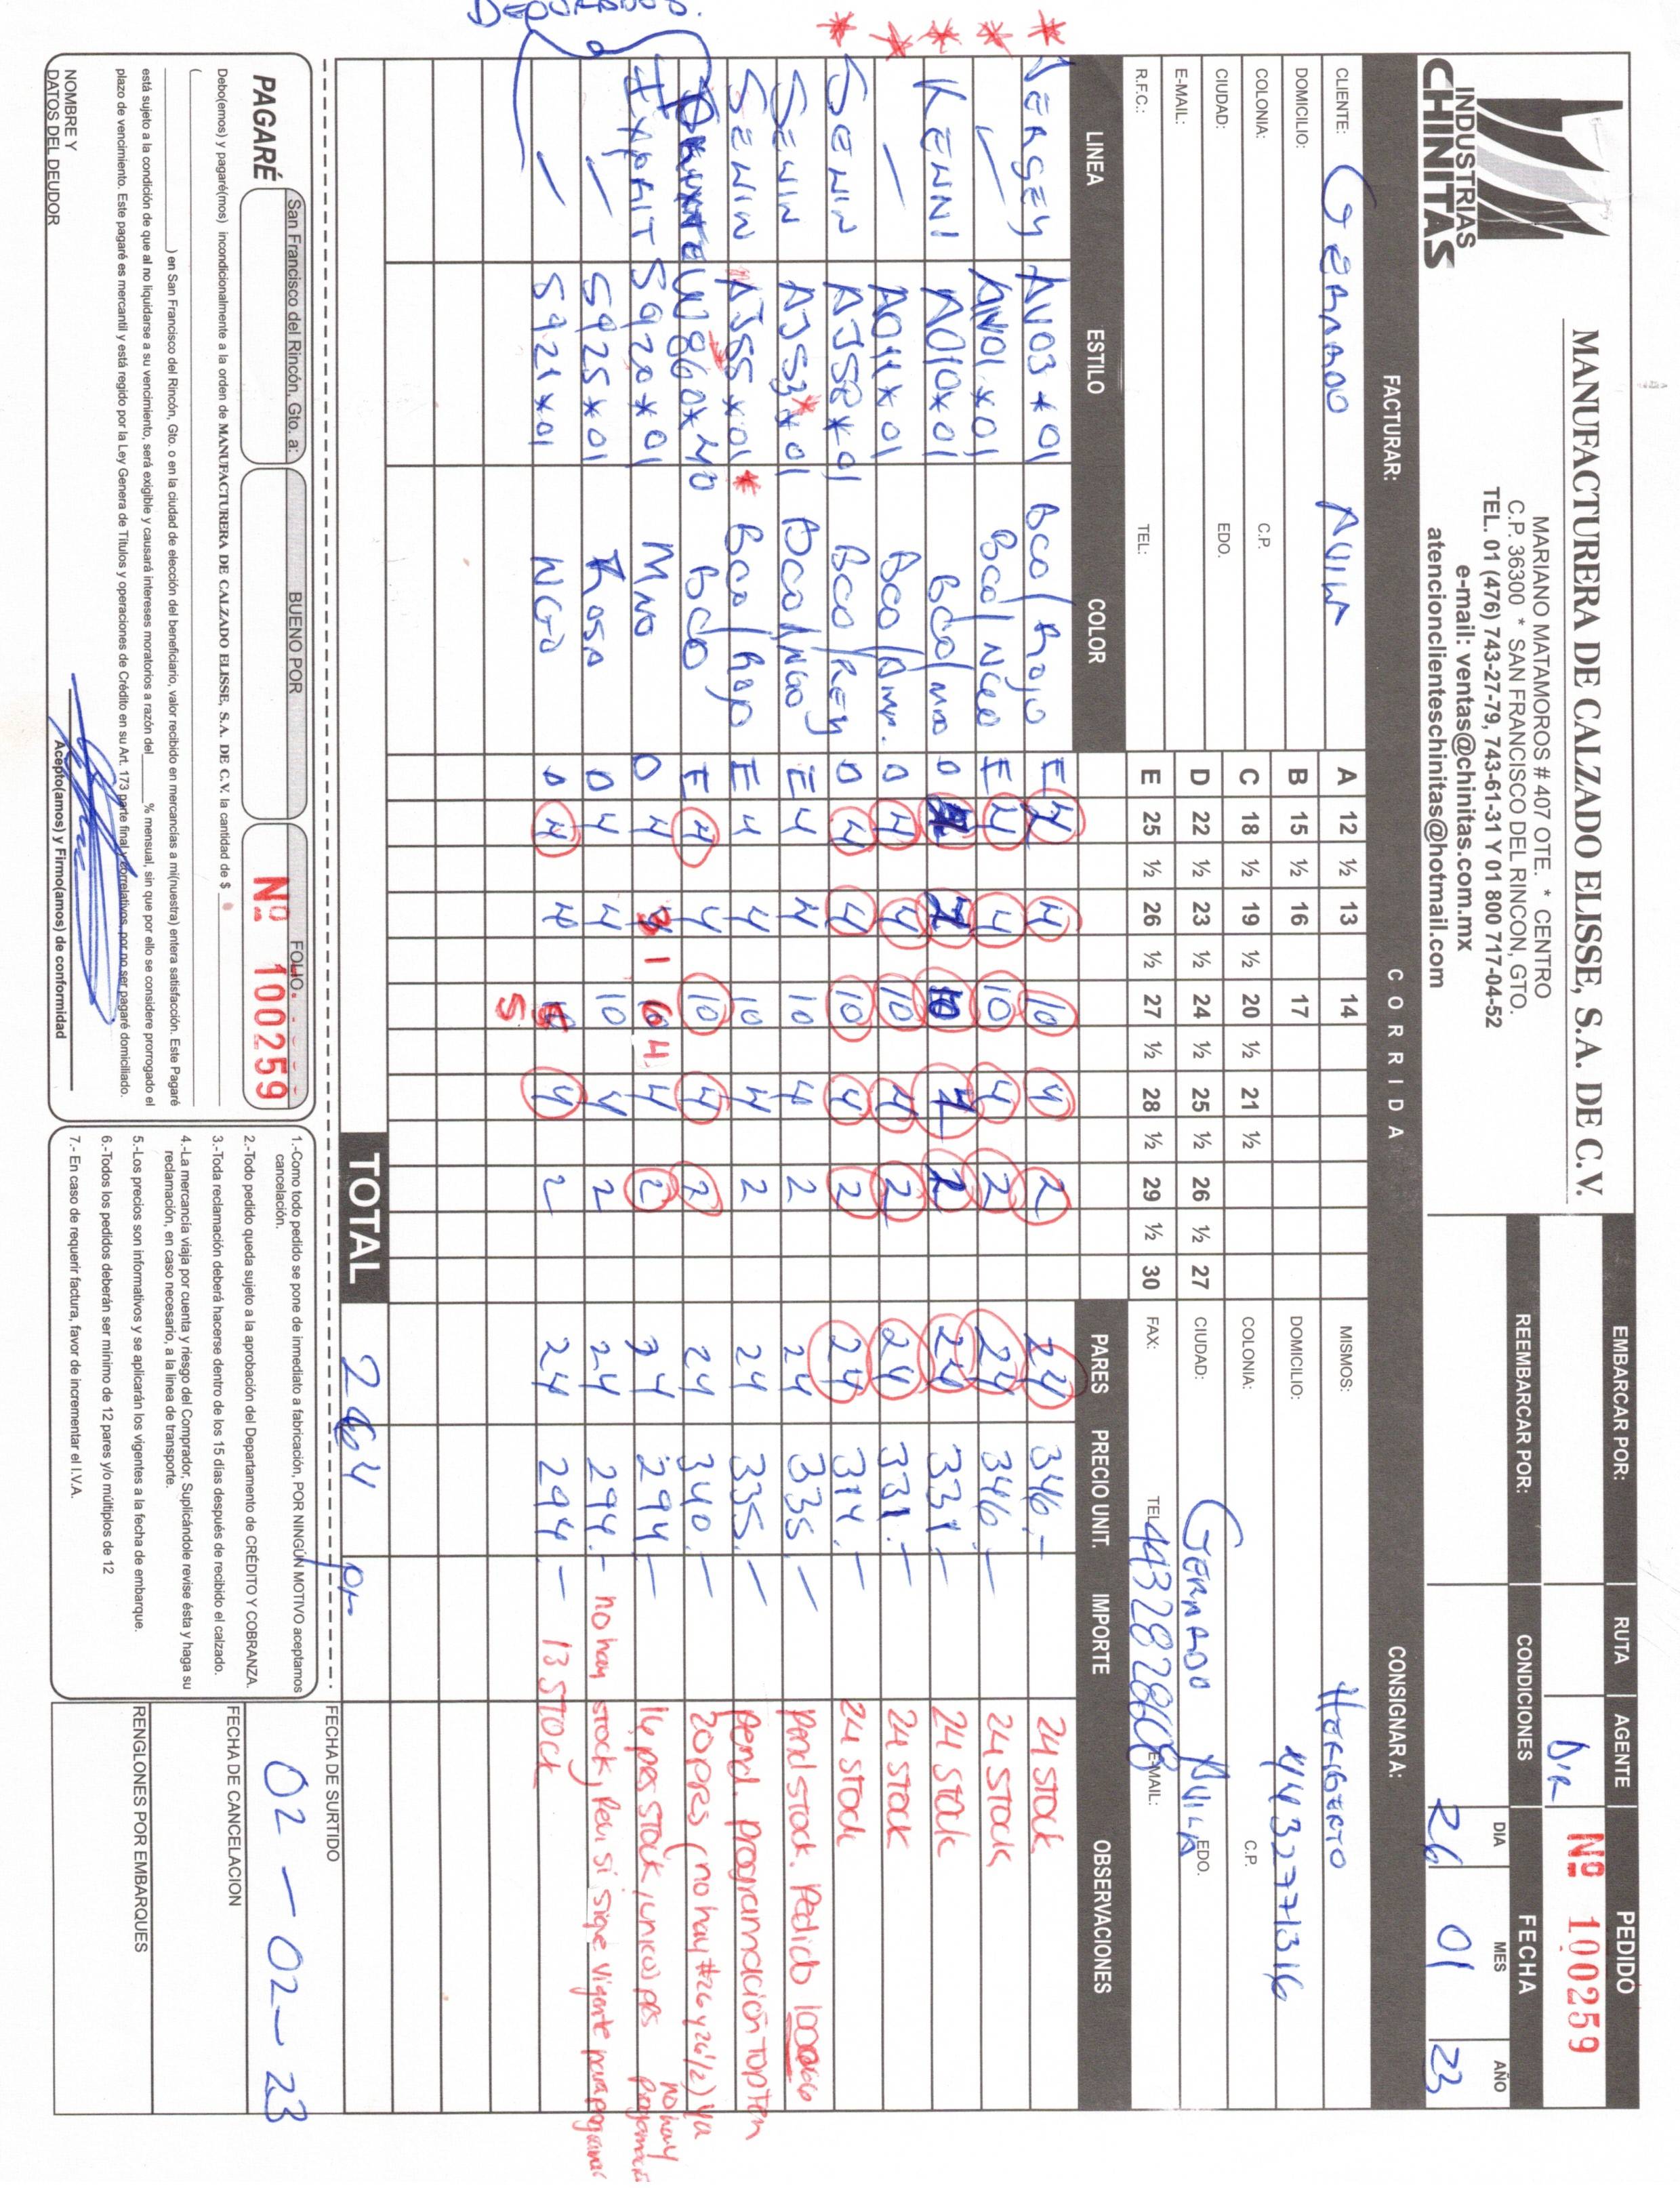 DEPURADOS.
INDUSTRIAS
CHINITAS
MANUFACTURERA DE CALZADO ELISSE, S.A. DE C.V.
MARIANO MATAMOROS # 407 OTE. * CENTRO
C.P. 36300 * SAN FRANCISCO DEL RINCON, GTO.
TEL. 01 (476) 743-27-79, 743-61-31 Y 01 800 717-04-52
e-mail: ventas@chinitas.com.mx
atencionclienteschinitas@hotmail.com
EMBARCAR POR: RUTA AGENTE PEDIDO
DIR Nº 100259
REEMBARCAR POR: CONDICIONES FECHA
DIA MES AÑO
26 01 23
FACTURAR: CORRIDA CONSIGNAR A:
CLIENTE: GERARDO AVILA A 12 ½ 13 14 MISMOS: HERIBERTO
DOMICILIO: B 15 ½ 16 17 DOMICILIO: 4432771316
COLONIA: C.P. C 18 ½ 19 ½ 20 ½ 21 ½ COLONIA: C.P.
CIUDAD: EDO. D 22 ½ 23 ½ 24 ½ 25 ½ 26 ½ 27 CIUDAD: GERARDO AVILA EDO.
E-MAIL:
R.F.C.: TEL: E 25 ½ 26 ½ 27 ½ 28 ½ 29 ½ 30 FAX: TEL: 4432828608 E-MAIL:
LINEA ESTILO COLOR PARES PRECIO UNIT. IMPORTE OBSERVACIONES
* JERGEY AV03*01 Bco/Rojo E 4 4 10 4 2 24 346.- 24 stock
* — AV01*01 Bco/Neo E 4 4 10 4 2 24 346.- 24 stock
* KENNI A010*01 Bco/Mno D 4 4 10 4 2 24 331.- 24 stock
* — A011*01 Bco/Amr. D 4 4 10 4 2 24 331.- 24 stock
* SENIN AJ58*01 Bco/Rey D 4 4 10 4 2 24 314.- 24 stock
SENIN AJ53*01 * Bco/Ngo E 4 4 10 4 2 24 335.- Pend stock. Pedido
SENIN AJ55*01 * Bco/Rojo E 4 4 10 4 2 24 335.- Pend. programación TopTen
W860*40 Bco E 4 4 10 4 2 24 340.- 20 prs (no hay #26 y 26½) ya
EXPRIT S920*01 Mno D 4 3 1 6 4 4 2 24 294.- 16 prs stock, unicos prs no hay
— S925*01 Rosa D 4 4 10 4 2 24 294.- no hay stock, Revi si sigue vigente para programar
— S921*01 NGO D 4 4 5 4 2 24 294.- 13 stock
5
TOTAL 264 pr
PAGARÉ San Francisco del Rincón, Gto. a: BUENO POR FOLIO
Nº 100259
Debo(emos) y pagaré(mos) incondicionalmente a la orden de MANUFACTURERA DE CALZADO ELISSE, S.A. DE C.V. la cantidad de $
( ) en San Francisco del Rincón, Gto. o en la ciudad de elección del beneficiario, valor recibido en mercancías a mi(nuestra) entera satisfacción. Este Pagaré
está sujeto a la condición de que al no liquidarse a su vencimiento, será exigible y causará intereses moratorios a razón del ____ % mensual, sin que por ello se considere prorrogado el
plazo de vencimiento. Este pagaré es mercantil y está regido por la Ley Genera de Títulos y operaciones de Crédito en su Art. 173 parte final y correlativos, por no ser pagaré domiciliado.
NOMBRE Y
DATOS DEL DEUDOR
Acepto(amos) y Firmo(amos) de conformidad
1.-Como todo pedido se pone de inmediato a fabricación, POR NINGÚN MOTIVO aceptamos
cancelación.
2.-Todo pedido queda sujeto a la aprobación del Departamento de CRÉDITO Y COBRANZA.
3.-Toda reclamación deberá hacerse dentro de los 15 días después de recibido el calzado.
4.-La mercancía viaja por cuenta y riesgo del Comprador, Suplicándole revise ésta y haga su
reclamación, en caso necesario, a la línea de transporte.
5.-Los precios son informativos y se aplicarán los vigentes a la fecha de embarque.
6.-Todos los pedidos deberán ser mínimo de 12 pares y/o múltiplos de 12
7.- En caso de requerir factura, favor de incrementar el I.V.A.
FECHA DE SURTIDO
02 - 02 - 23
FECHA DE CANCELACION
RENGLONES POR EMBARQUES